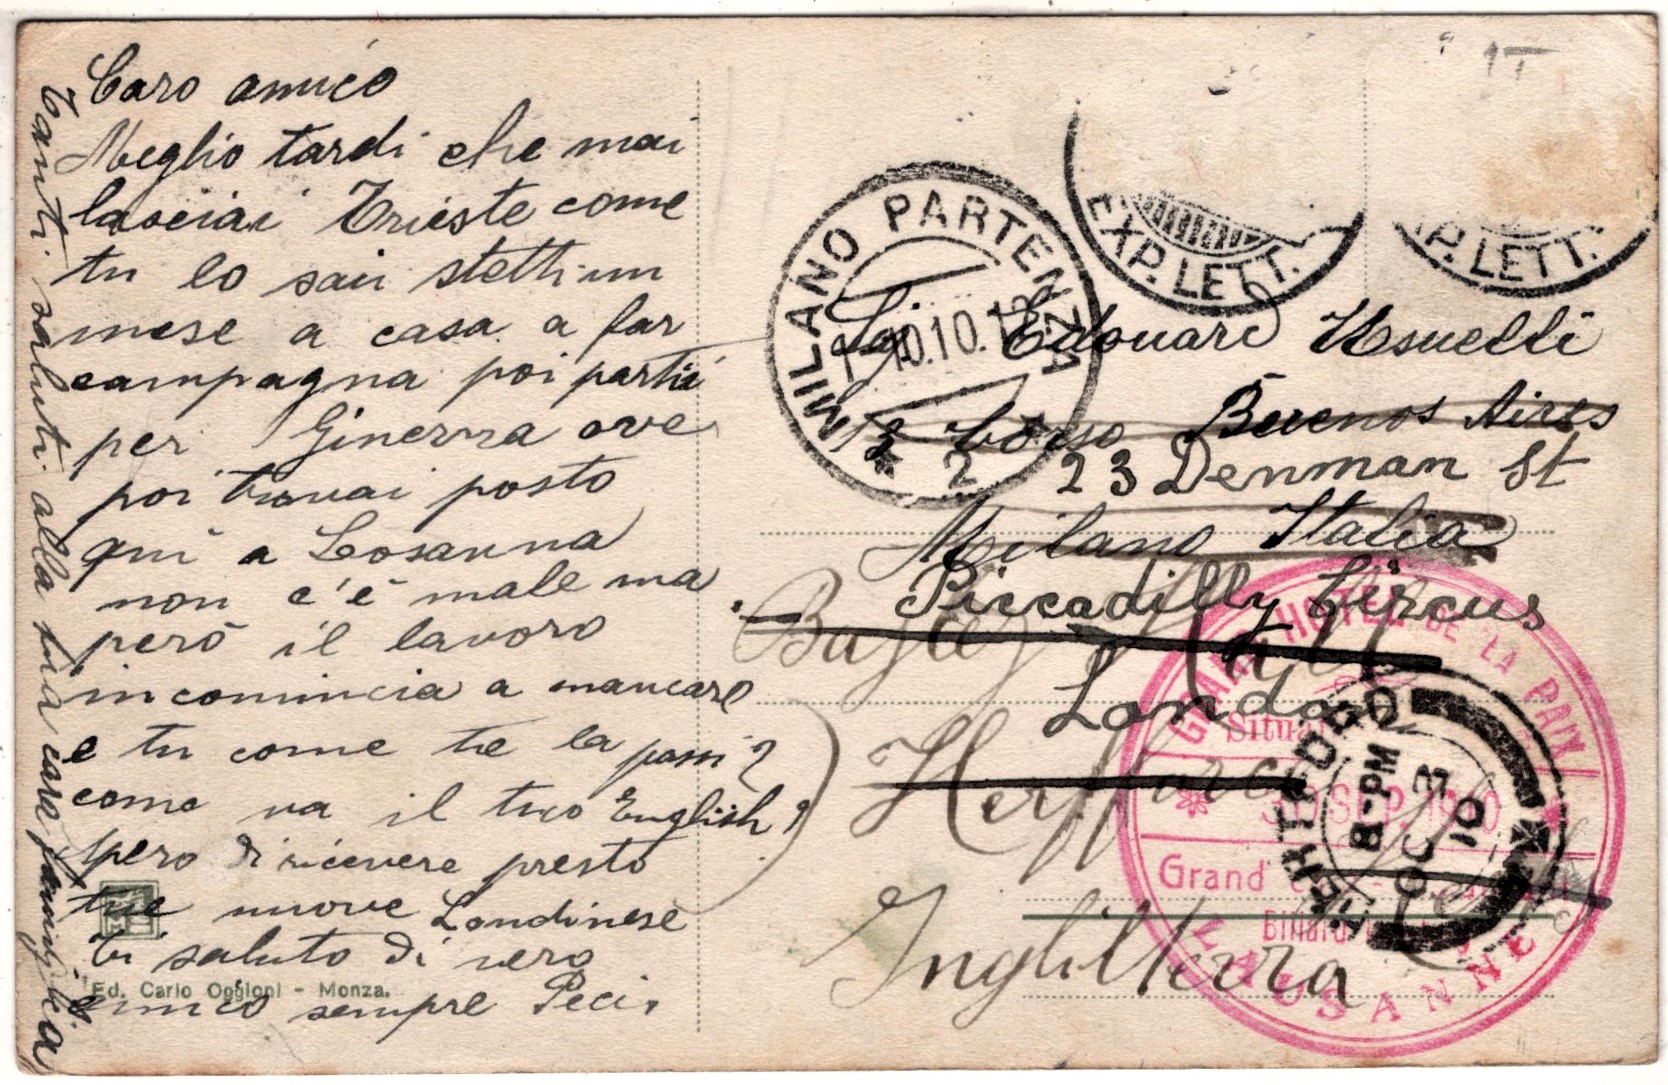 Caro amico
Meglio tardi che mai
lasciai Trieste come
tu lo sai stetti un
mese a casa a far
campagna poi partii
per Ginevra ove
poi trovai posto
qui a Losanna
non c'è male ma
però il lavoro
incomincia a mancare
e tu come te la passi?
come va il tuo English?
spero di ricevere presto
tue nuove Londinese
ti saluto di vero
amico sempre Peci.
Tanti saluti alla tua cara famiglia
Ed. Carlo Oggioni - Monza.
1T
MILANO PARTENZA
10.10.
2
EXP. LETT.
EXP. LETT.
Sig Edouard Usuelli
3 Corso Buenos Aires
23 Denman St
Milano Italia
Piccadilly Circus
Hall
London
Inghilterra
GRAND HOTEL DE LA PAIX
30 SEP. 1910
Grand
LAUSANNE
HERTFORD
8-PM
OC 3
10